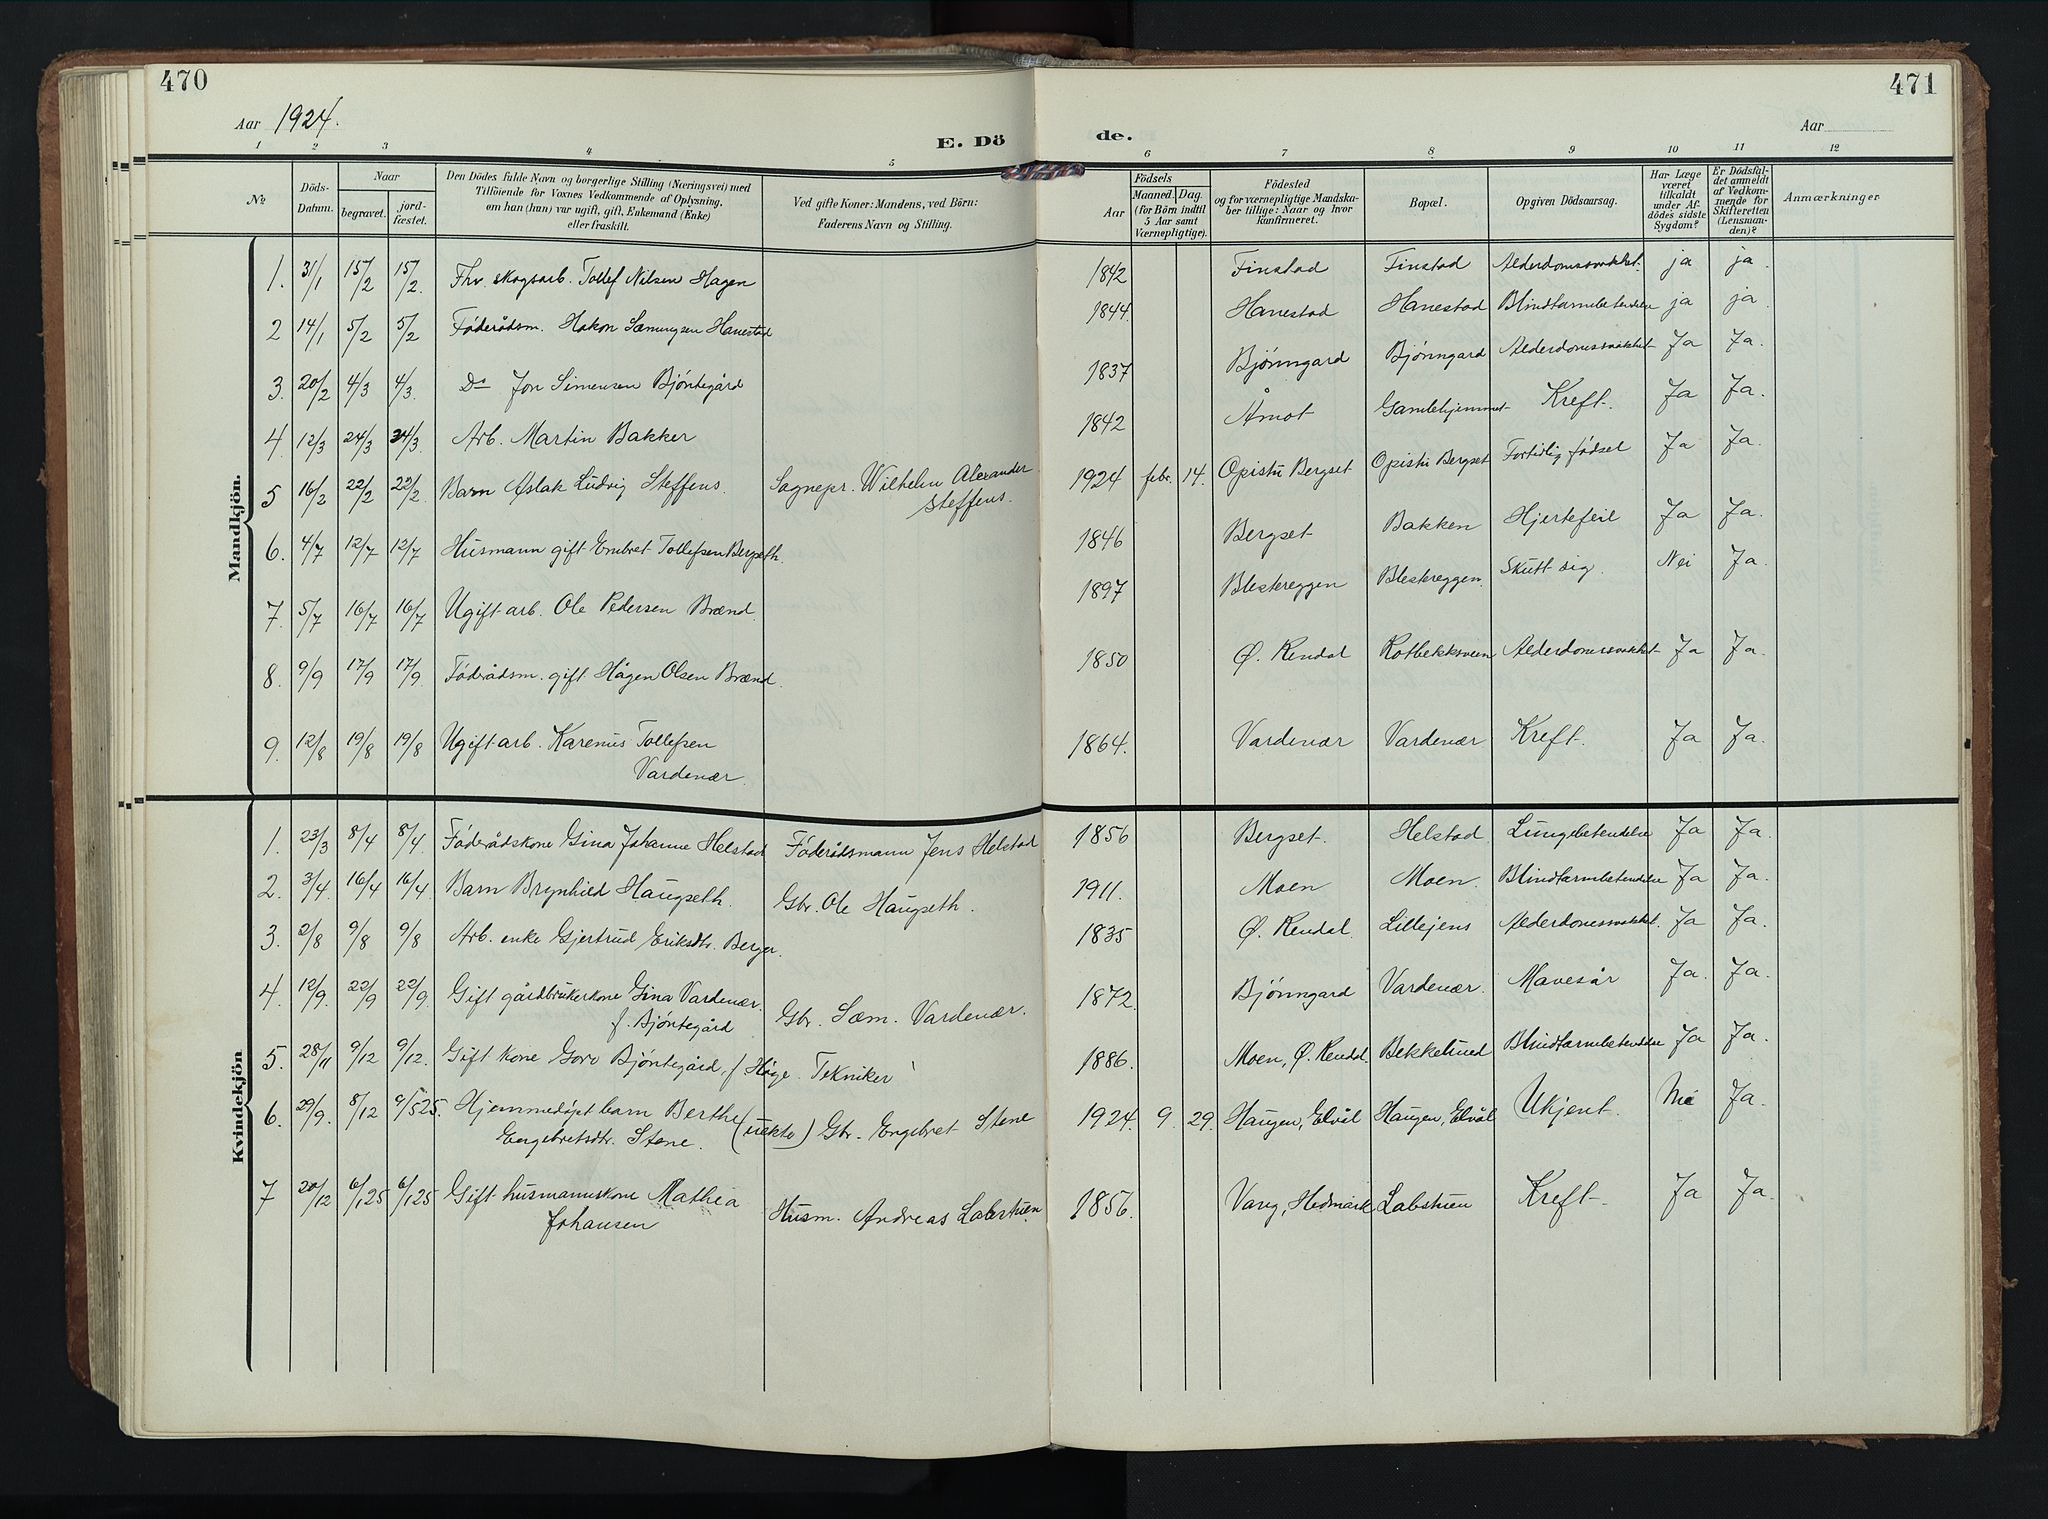 470
471
Aar 1924.
Aar
E. Dö de.
1 2 3 4 5 6 7 8 9 10 11 12
№
Döds-Datum.
Naar
begravet.
jord-fæstet.
Den Dödes fulde Navn og borgerlige Stilling (Næringsvei) med
Tilföiende for Voxnes Vedkommende af Oplysning,
om han (hun) var ugift, gift, Enkemand (Enke)
eller fraskilt.
Ved gifte Koner: Mandens, ved Börn:
Faderens Navn og Stilling.
Födsels
Aar
Maaned. Dag.
(for Börn indtil
5 Aar samt
Værnepligtige).
Födested
og for værnepligtige Mandska-
ber tillige: Naar og hvor
konfirmeret.
Bopæl.
Opgiven Dödsaarsag.
Har Læge
været
tilkaldt
under Af-
dödes sidste
Sygdom?
Er Dödsfal-
det anmeldt
af Vedkom-
mende for
Skifteretten
(Lensman-
den)?
Anmærkninger
Mandkjön.
1. 31/1 15/2 15/2. Fhv. skogsarb. Tollef Nilsen Hagen 1842 Finstad Finstad Alderdomssvakhet. ja ja.
2 14/1 5/2 5/2 Föderådsm. Hakon Sæmingsen Hanestad 1844. Hanestad Hanestad Blindtarmbetendelse ja ja
3. 20/2 4/3 4/3. Do Jon Simensen Bjöntegård 1837 Bjönngard Bjönngard Alderdomssvakhet Ja Ja.
4. 12/3 24/3 24/3. Arb. Martin Bakker 1842 Åmot Gamlehjemmet Kreft. Ja Ja.
5 16/2 22/2 22/2. Barn Aslak Ludvig Steffens. Sognepr. Wilhelm Alexander
Steffens. 1924 febr. 14. Opistu Bergset Opistu Bergset Fortidlig födsel Ja Ja.
6. 4/7 12/7 12/7 Husmann gift Embret Tollefsen Bergseth. 1846 Bergset Bakken Hjertefeil Ja Ja.
7. 5/7 16/7 16/7 Ugift arb. Ole Pedersen Brænd. 1897 Blestereggen Blestereggen. Skutt sig. Nei Ja.
8. 9/9 17/9 17/9. Föderådsm. gift Hågen Olsen Brænd. 1850 Ø. Rendal Rotbekksveen Alderdomssvakhet Ja Ja.
9. 12/8 19/8 19/8 Ugift arb. Karenus Tollefsen
Vardenær. 1864. Vardenær Vardenær Kreft. Ja Ja.
Kvindekjön
1. 23/3 8/4 8/4. Föderådskone Gina Johanne Helstad Föderådsmann Jens Helstad 1856 Bergset. Helstad Lungebetendelse Ja Ja.
2. 3/4 16/4 16/4 Barn Brynhild Haugseth. Gbr. Ole Haugseth. 1911. Moen Moen. Blindtarmbetendelse Ja Ja.
3. 2/8 9/8 9/8 Arb. enke Gjertrud Eriksdtr. Berger. 1835 Ø. Rendal. Lillejens Alderdomssvakhet. Ja Ja.
4. 12/9. 22/9 22/9. Gift gårdbrukerkone Gina Vardenær.
f. Bjöntegård Gbr. Sæm. Vardenær. 1872. Bjönngard Vardenær. Mavesår Ja. Ja.
5. 28/11 9/12 9/12. Gift kone Goro Bjöntegård, f Håge. Tekniker 1886. Moen, Ø. Rendal. Bekkelund Blindtarmbetendelse Ja Ja.
6. 29/9. 8/12 9/5 25. Hjemmedöpt barn Berthe (uekte) Gbr. Engebret Stene
Engebretsdtr. Stene. 1924. 9. 29. Haugen, Elvål Haugen, Elvål Ukjent. Nei Ja.
7 20/12 6/1 25 6/1 25 Gift husmannskone Mathea
Johansen Husm. Andreas Labstuen 1856. Vang, Hedmark Labstuen Kreft Ja Ja.